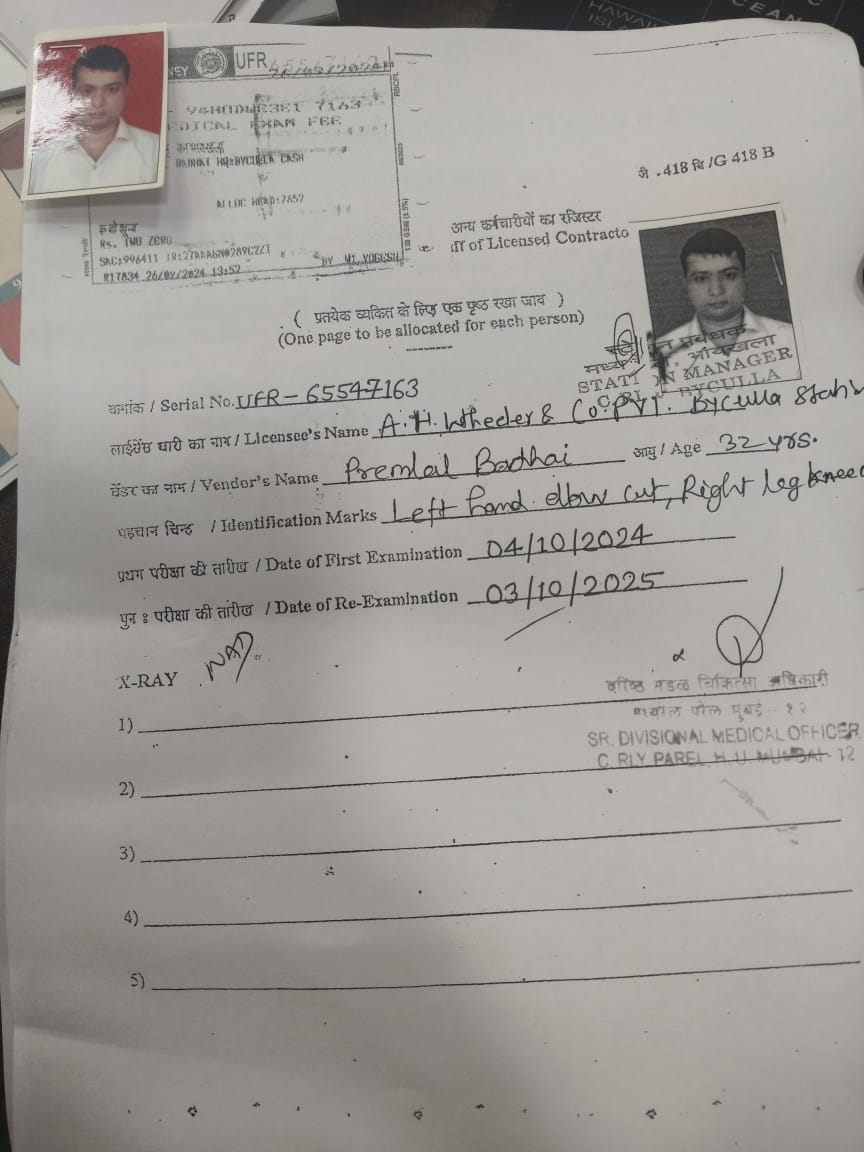 HAWAII
ISL
OCEAN
NEY UFR
26/09/2024
7163
MEDICAL EXAM FEE
BADHAI HQ:BYCULLA CASH
ALLOC HEAD:7652
Rs. TWO ZERO
SAC:996411
BY M1 YOGESH
R17834 26/09/2024 13:52
RBCPL
जी .418 बि /G 418 B
अन्य कर्मचारीयों का रजिस्टर
ff of Licensed Contracto
( प्रतयेक व्यकित के लिए एक पृष्ठ रखा जाव )
(One page to be allocated for each person)
STATION MANAGER
C. RLY BYCULLA
क्रमांक / Serial No. UFR - 65547163
लाईसेंस धारी का नाम / Licensee's Name A.H. Wheeler & Co. PVT. Byculla Statn
वेंडर का नाम / Vendor's Name Premlal Badhai आयु / Age 32 yrs.
पहचान चिन्ह / Identification Marks Left hand elbow cut, Right leg knee
प्रथम परीक्षा की तारीख / Date of First Examination 04/10/2024
पुन ः परीक्षा की तांरीख / Date of Re-Examination 03/10/2025
X-RAY NAD
वरिष्ठ मडळ चिकित्सा अधिकारी
SR. DIVISIONAL MEDICAL OFFICER
C. RLY PAREL H.U. MUMBAI- 12
1)
2)
3)
4)
5)